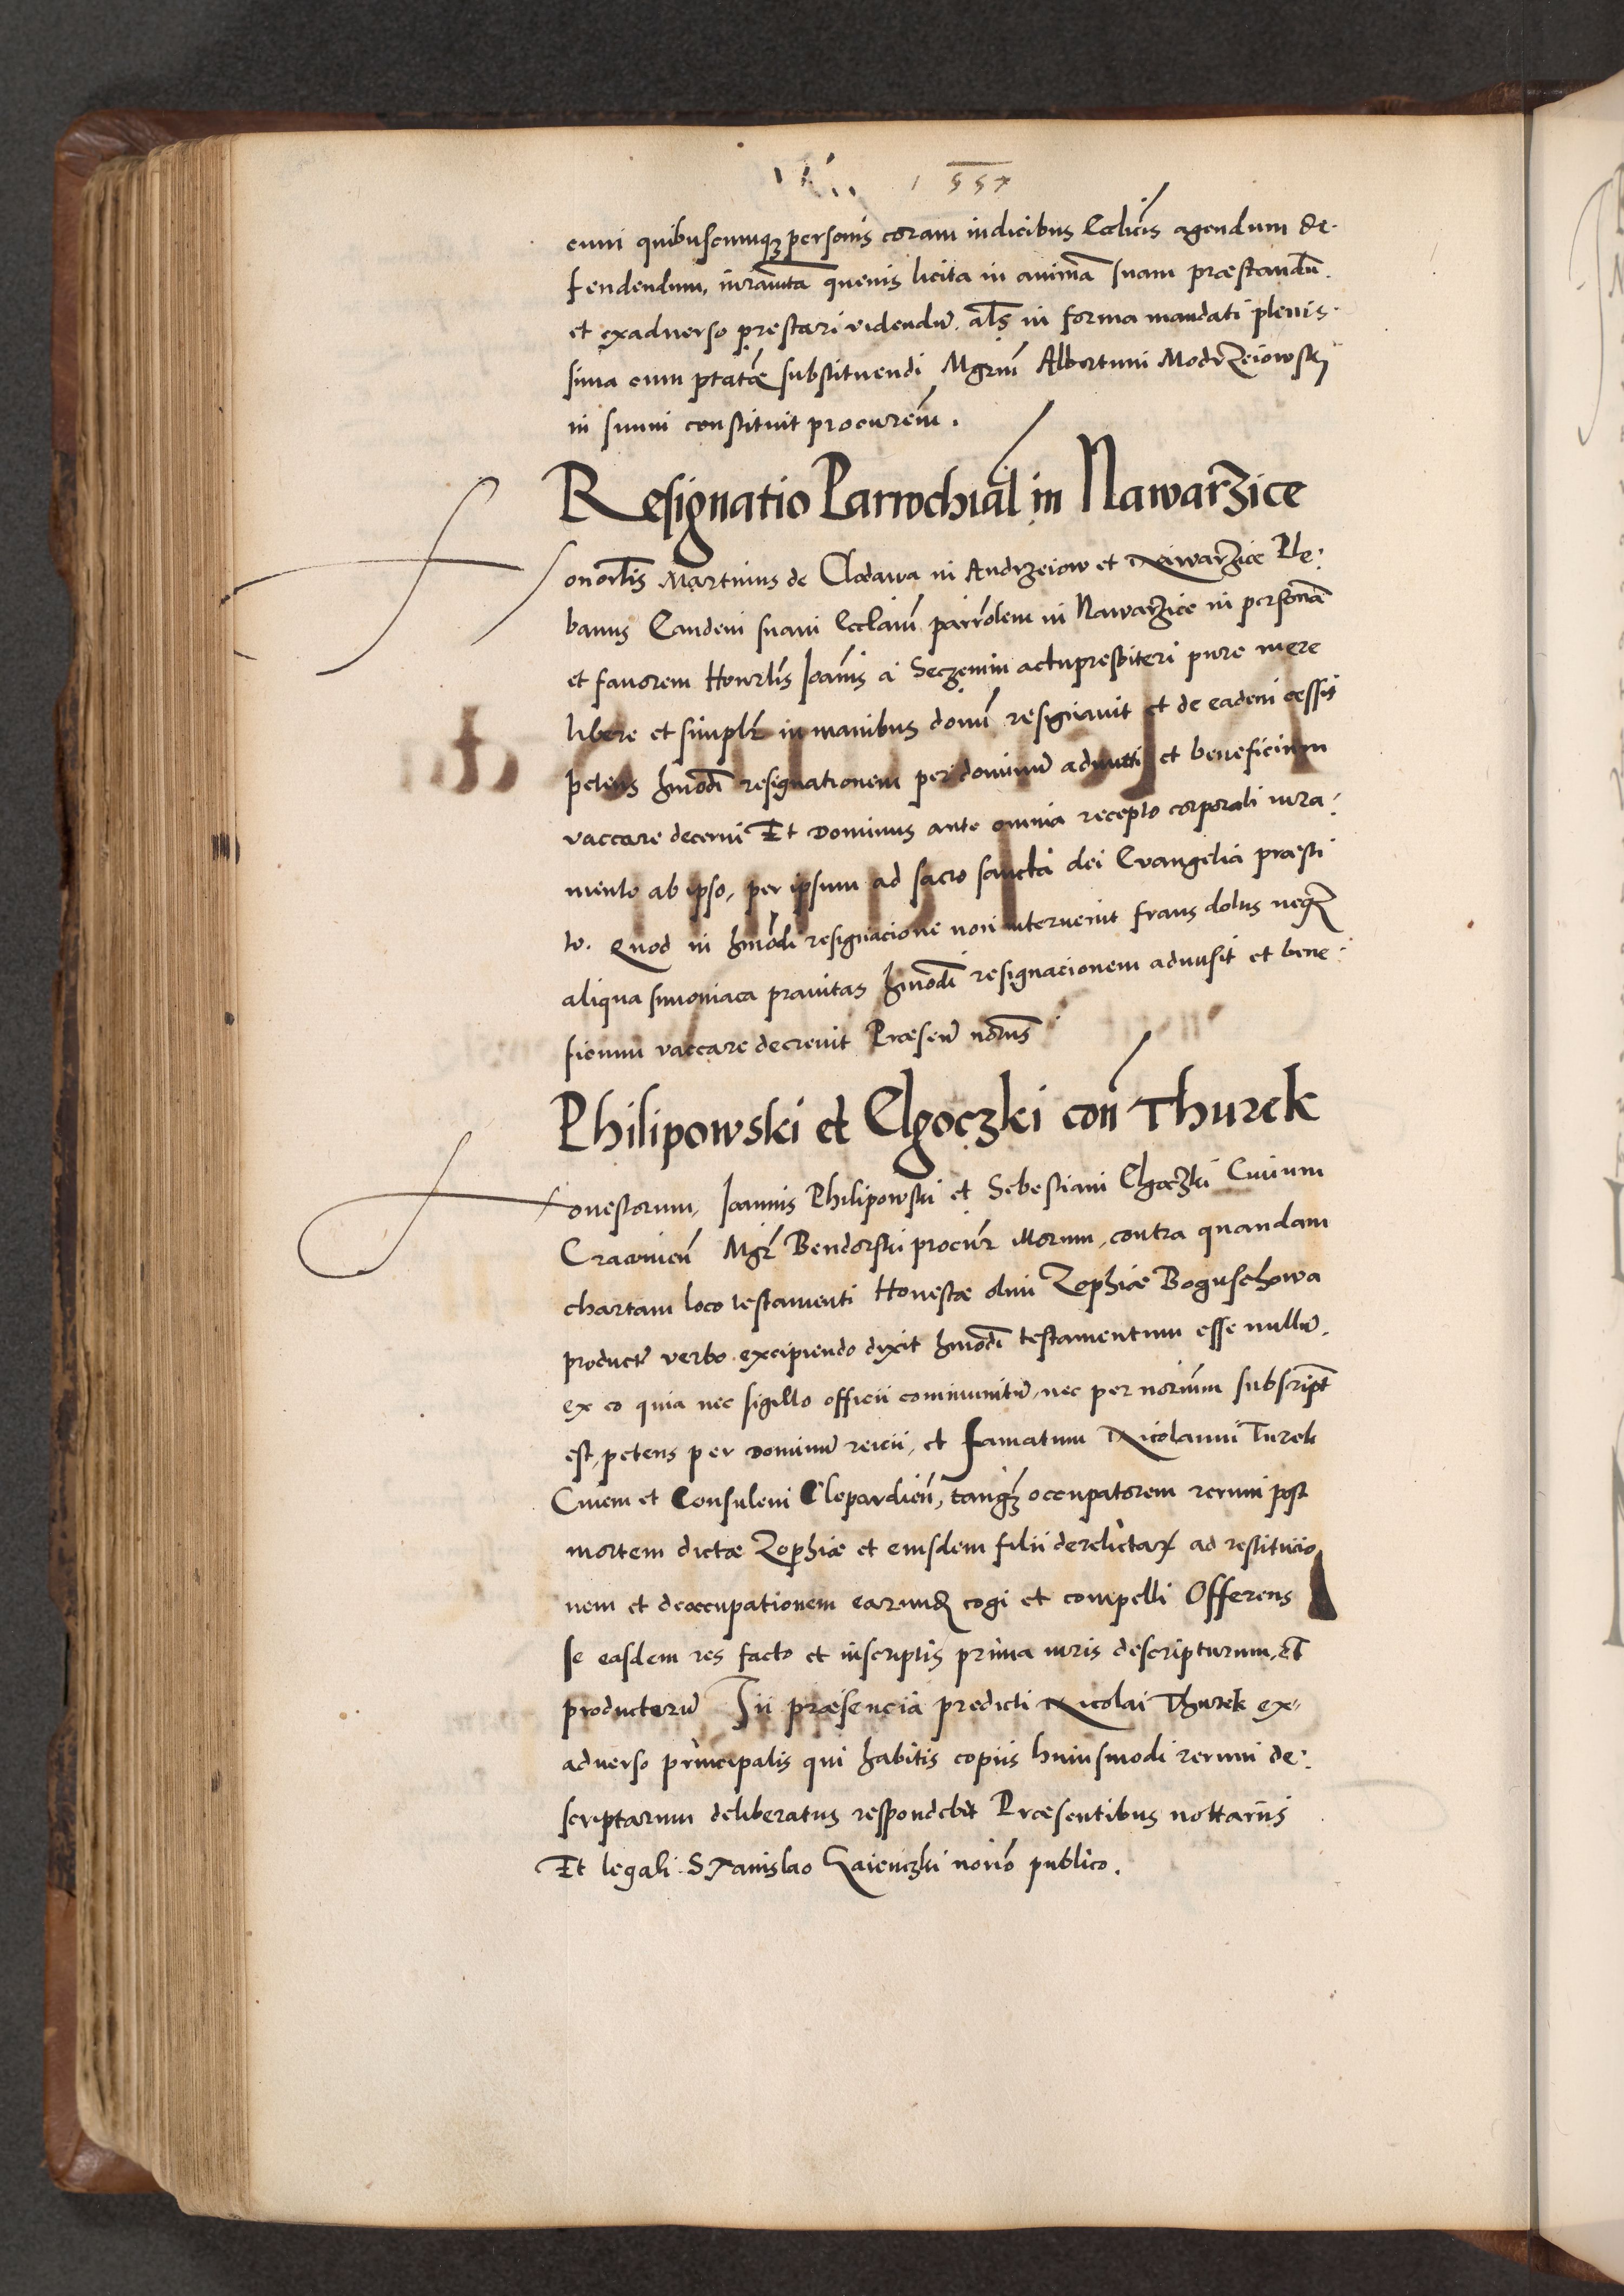 1557
cum quibuscumqz personis coram iudicibus Ecclicis agendum de-
fendendum, iuramta quevis licita in animā suam præstandū.
et exadverso prestari videndū. als in forma mandati plenis-
sima cum ptatæ substituendi Mgrm Albertum Modrzeiowski
in suum constituit procurem.
Resignatio Parrochial in Nawarzice
Honorlis Martinus de Clodawa in Andrzeiow et Nawarzice Ple-
banus Eandem suam Ecclaīm parrolem in Nawarzice in personā
et favorem Honrlis Joānis a Seczemin actupresbiteri pure mere
libere et simplr in manibus domi resignavit et de eadem cessit
petens hmōdi resignationem per dominū admitti et beneficium
vaccare decerni Et Dominus ante omnia recepto corporali iura-
mento ab ipso, per ipsum ad sacro sancta dei Evangelia præsti
to. Quod in hmōdi resignacione non intervenit fraus dolus neqz
aliqua simoniaca pravitas hmōdi resignacionem admisit et bene-
ficium vaccare decrevit Præsen norus
Philipowski et Choczki con Thurek
Honestorum, Joannis Philipowski et Sebestiani Choczki Civium
Cracovien Mgr Bendorski procur illorum, contra quandam
chartam loco testamenti Honestæ olim Zophiæ Boguschowa
product verbo excipiendo dixit hmōdi testamentum esse nullū.
ex eo quia nec sigillo officii communitū, nec per norium subscript
est, petens per Dominū reiici, et famatum Nicolaum Turek
Civem et Consulem Cleparden, tanqz occupatorem rerum post
mortem dictæ Zophiæ et eiusdem filii derelictar ad restitucio
nem et deoccupationem earund cogi et compelli Offerens
se easdem res facto et inscriptis prima iuris descripturum, et
producturū In præsencia predicti Nicolai Thurek ex-
adverso principalis qui habitis copiis huiusmodi rerum de-
scriptarum deliberatus respondebit Præsentibus nottariis
Et legali Stanislao Zaienczki norio publico.